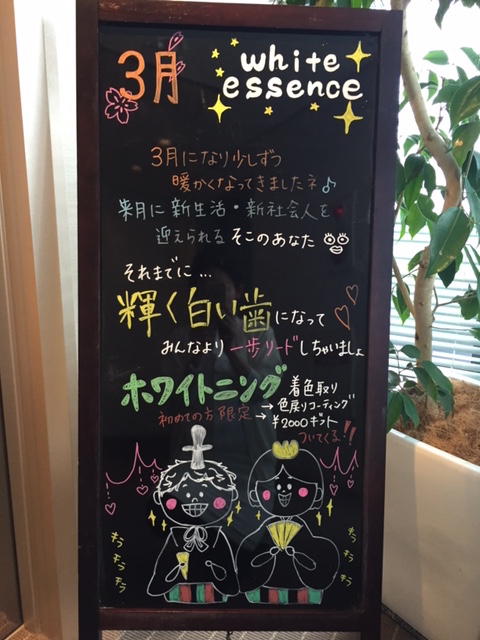 3月
white
essence
3月になり少しずつ
暖かくなってきましたネ♪
来月に新生活・新社会人を
迎えられるそこのあなた
それまでに…
輝く白い歯になって
みんなより一歩リードしちゃいましょ
ホワイトニング
初めての方限定
着色取り
→色戻りコーティング
→¥2000ギフト
ついてくる!!
キラ
キラ
キラ
キラ
キラ
キラ